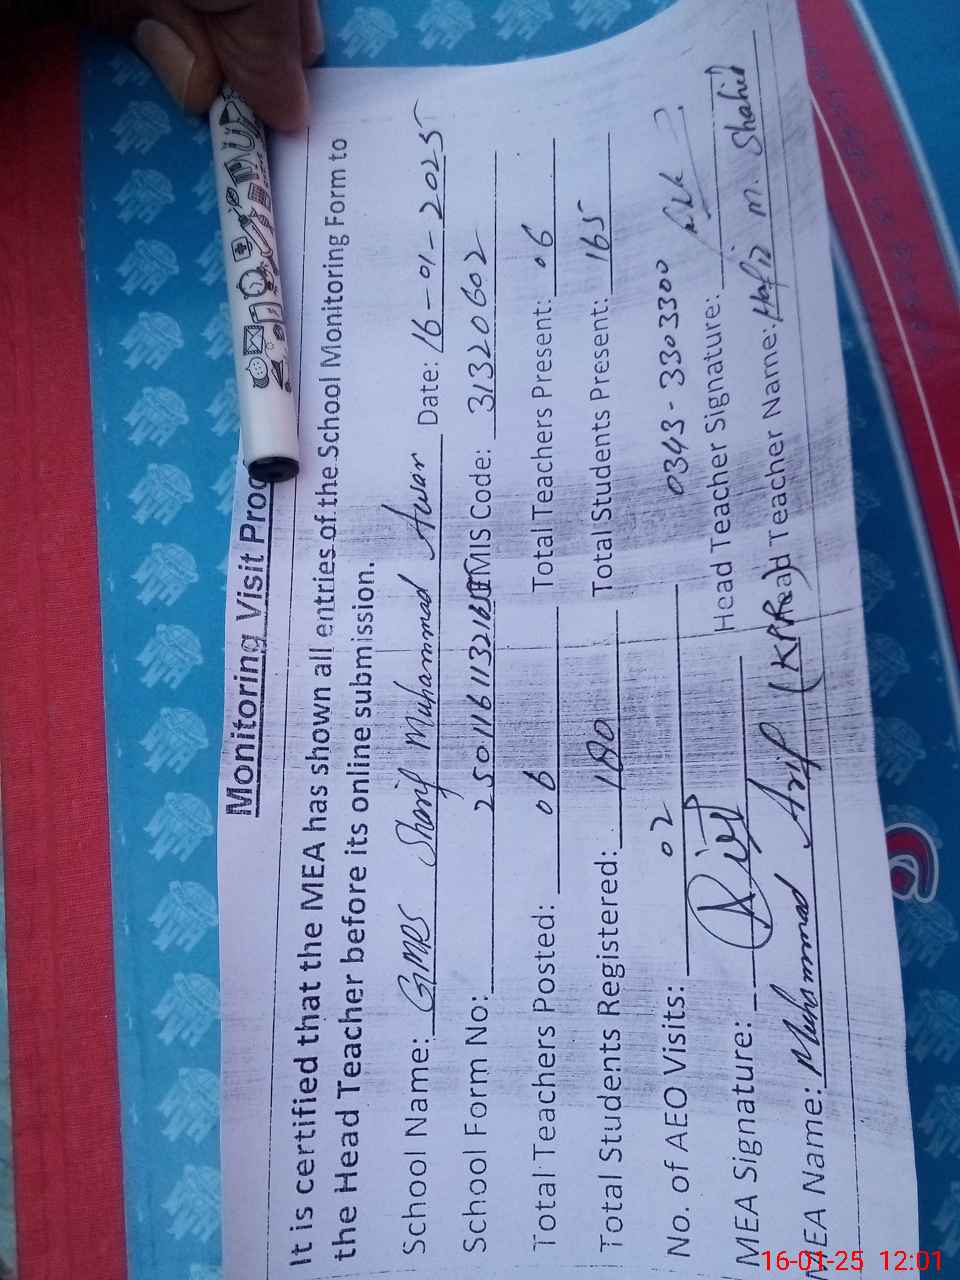 Monitoring Visit Proo
It is certified that the MEA has shown all entries of the School Monitoring Form to
the Head Teacher before its online submission.
School Name: GMPS Sharif Muhammad Awar Date: 16-01-2025
School Form No: EMIS Code: 31320602
Total Teachers Posted: 06 Total Teachers Present: 06
Total Students Registered: 180 Total Students Present: 165
No. of AEO Visits: 02 0343-3303300
MEA Signature: Head Teacher Signature:
MEA Name: Muhammad Arif Head Teacher Name: Hafiz M. Shahid
16-01-25 12:01